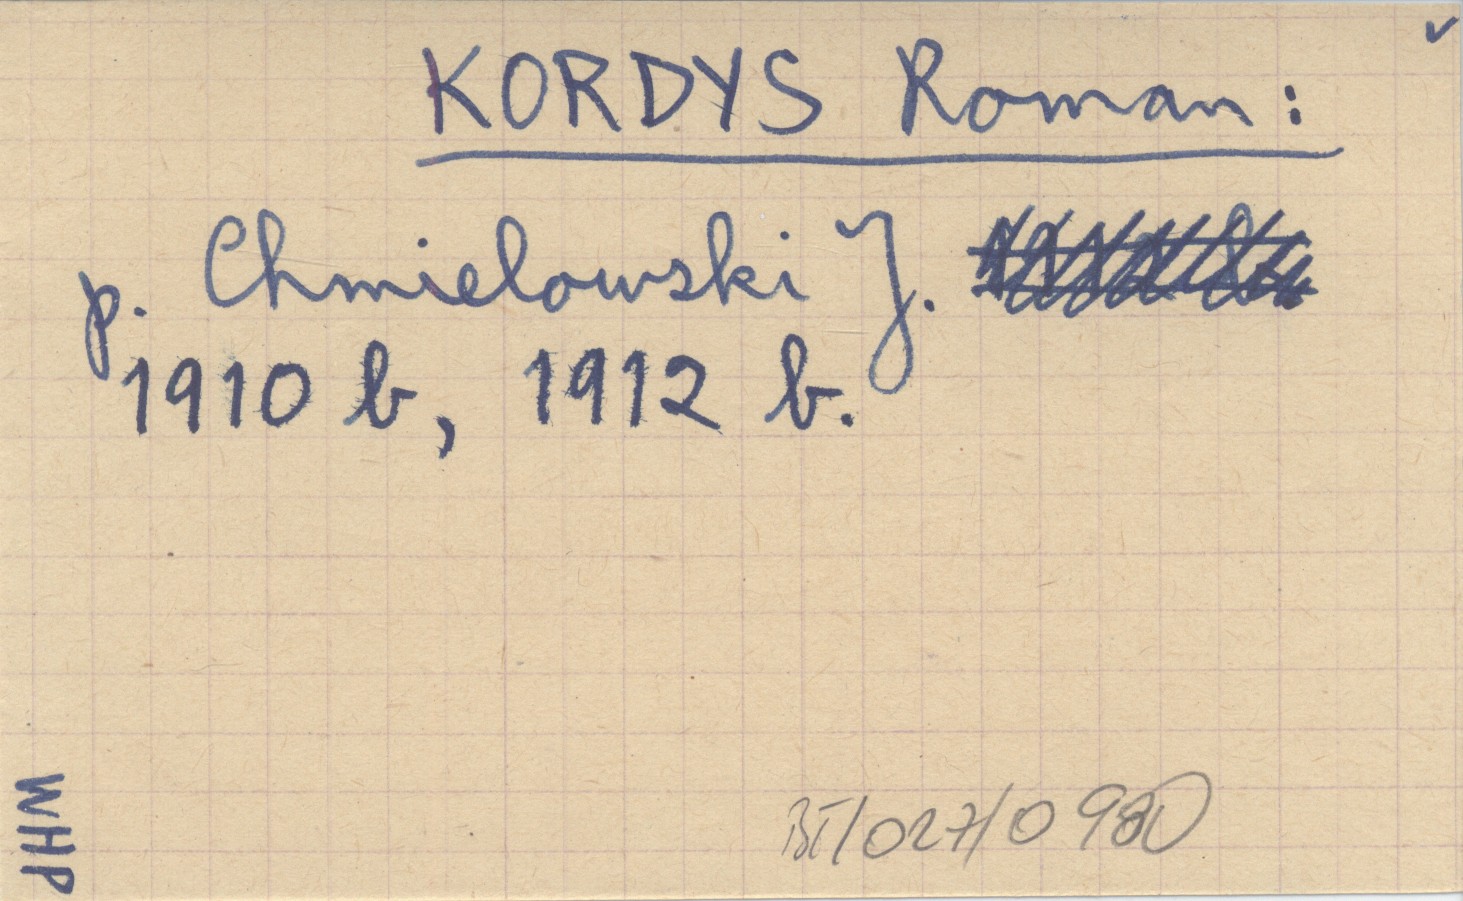 KORDYS Roman:
p. Chmielowski J.
1910 b, 1912 b.
WHP
BT/027/0980